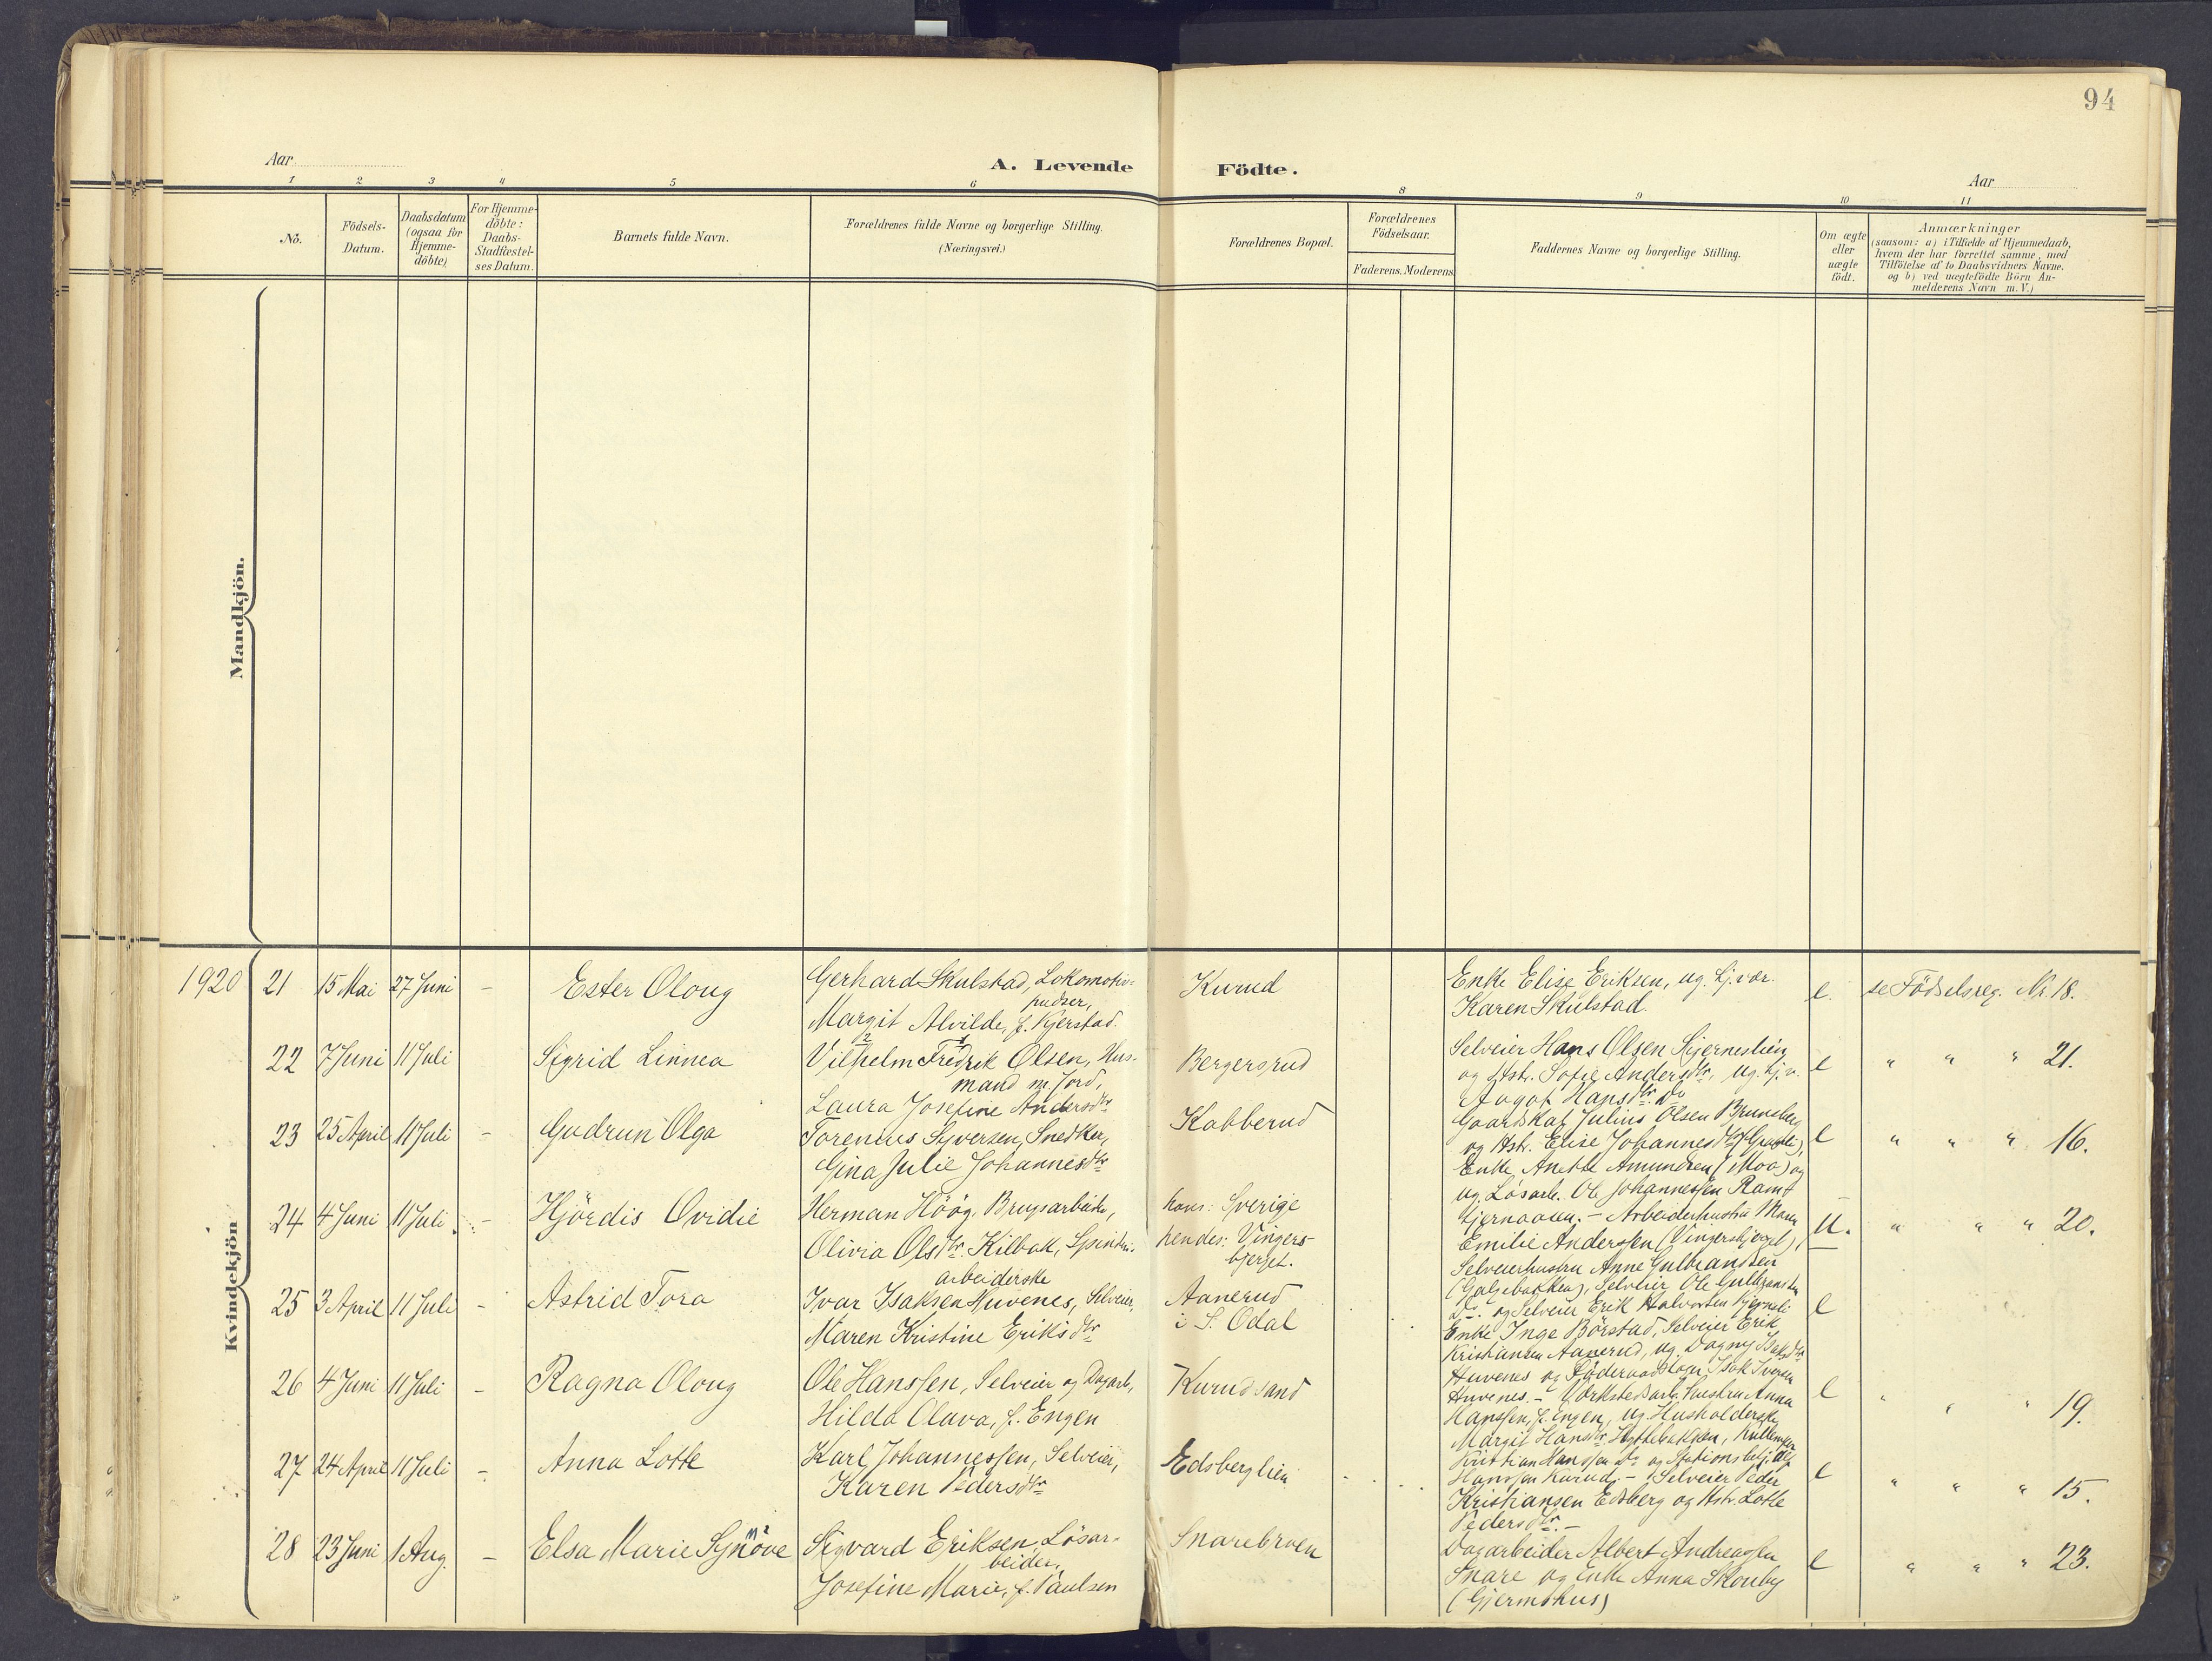 94
Aar
A. Levende Födte.
Aar
1 2 3 4 5 6 8 9 10 11
No.
Födsels-
Datum.
Daabsdatum
(ogsaa for
Hjemme-
döbte)
For Hjemme-
döbte:
Daabs-
Stadfæstel-
ses Datum.
Barnets fulde Navn.
Forældrenes fulde Navne og borgerlige Stilling.
(Næringsvei.)
Forældrenes Bopæl.
Forældrenes
Födselsaar.
Faderens. Moderens
Faddernes Navne og borgerlige Stilling.
Om ægte
eller
uægte
födt.
Anmærkninger
(saasom: a) i Tilfælde af Hjemmedaab,
hvem der har forrettet samme, med
Tilföielse af to Daabsvidners Navne.
og b) ved uægtefödte Börn An-
melderens Navn m. V.)
Mandkjön.
Kvindekjön
1920
21 15 Mai 27 Juni - Ester Oloug
Gerhard Skulstad, Lokomotiv-
pudser,
Margit Alvilde, f. Kjerstad.
Kurud
Enke Elise Eriksen, ug. hj.vær.
Karen Skulstad.
e. se Födselsreg. Nr. 18.
22 7 Juni 11 Juli Sigrid Linnea
2 1
Vilhelm Fredrik Olsen, Hus-
mand m. Jord,
Laura Josefine Andersdtr
Bergersrud
Selveier Hans Olsen Skjerneslien
og Hstr. Sofie Andersdtr, ug. hj.v.
Aagot Hansdtr. Do
e " " " 21.
23 25 April 11 Juli - Gudrun Olga
Torenius Syversen, Snedker,
Gina Julie Johannesdtr
Kabberud
Gaardskar Julius Olsen Brunsberg
og Hstr. Elise Johannesdtr
Enke Anette Amundsen (Moa) og
ug. Løsarb. Ole Johannessen
e " " " 16.
24 4 Juni 11 Juli - Hjördis Ovidie
Herman Höög, Brugsarbeider,
Olivia Olsdtr. Kilbak,
arbeiderske
hans: Sverige
hendes: Vingers-
bjerget.
- Arbeiderhustru Maren
Emilie Anderssen (Vingersbjerget),
Selveierhustru Anne Gulbrandsen
(Galgebakken), Selveier Ole Gulbrandsen
Do. og Selveier Erik Halvorsen
u. " " " 20.
25 3 April 11 Juli - Astrid Tora
Ivar Isaksen Huvenes, Selveier,
Maren Kristine Eriksdtr
Aanerud
i S. Odal
Enke Inge Börstad, Selveier Erik
Kristiansen Aanerud, ug. Dagny Isaksdtr
Huvenes og Föderaadsmand Isak Iversen
Huvenes. -
e
26 4 Juni 11 Juli - Ragna Oloug
Ole Hanssen, Selveier og Dagarb,
Hilda Olava, f. Engen
Kurudsand
Værkstedsarb. hustru Anna
Hanssen, f. Engen, ug. Husholderske
Margit Hansdtr Hyttebakken,
Kristian Hanssen Do og Stationsbetj. Ole
Hanssen Kurud. -
e " " " 19.
27 24 April 11 Juli - Anna Lotte
Karl Johannessen, Selveier,
Karen Pedersdtr
Edsberglien
Selveier Peder
Kristiansen Edsberg og Hstr. Lotte
Pedersdtr. -
e " " " 15.
28 23 Juni 1 Aug. - Elsa Marie Synöve
Sigvard Eriksen, Lösar-
beider,
Josefine Marie, f. Paulsen
Snarebroen
Dagarbeider Albert Andreassen
Snare og Enke Anna Skouby
(Gjermshus)
e " " " 23.